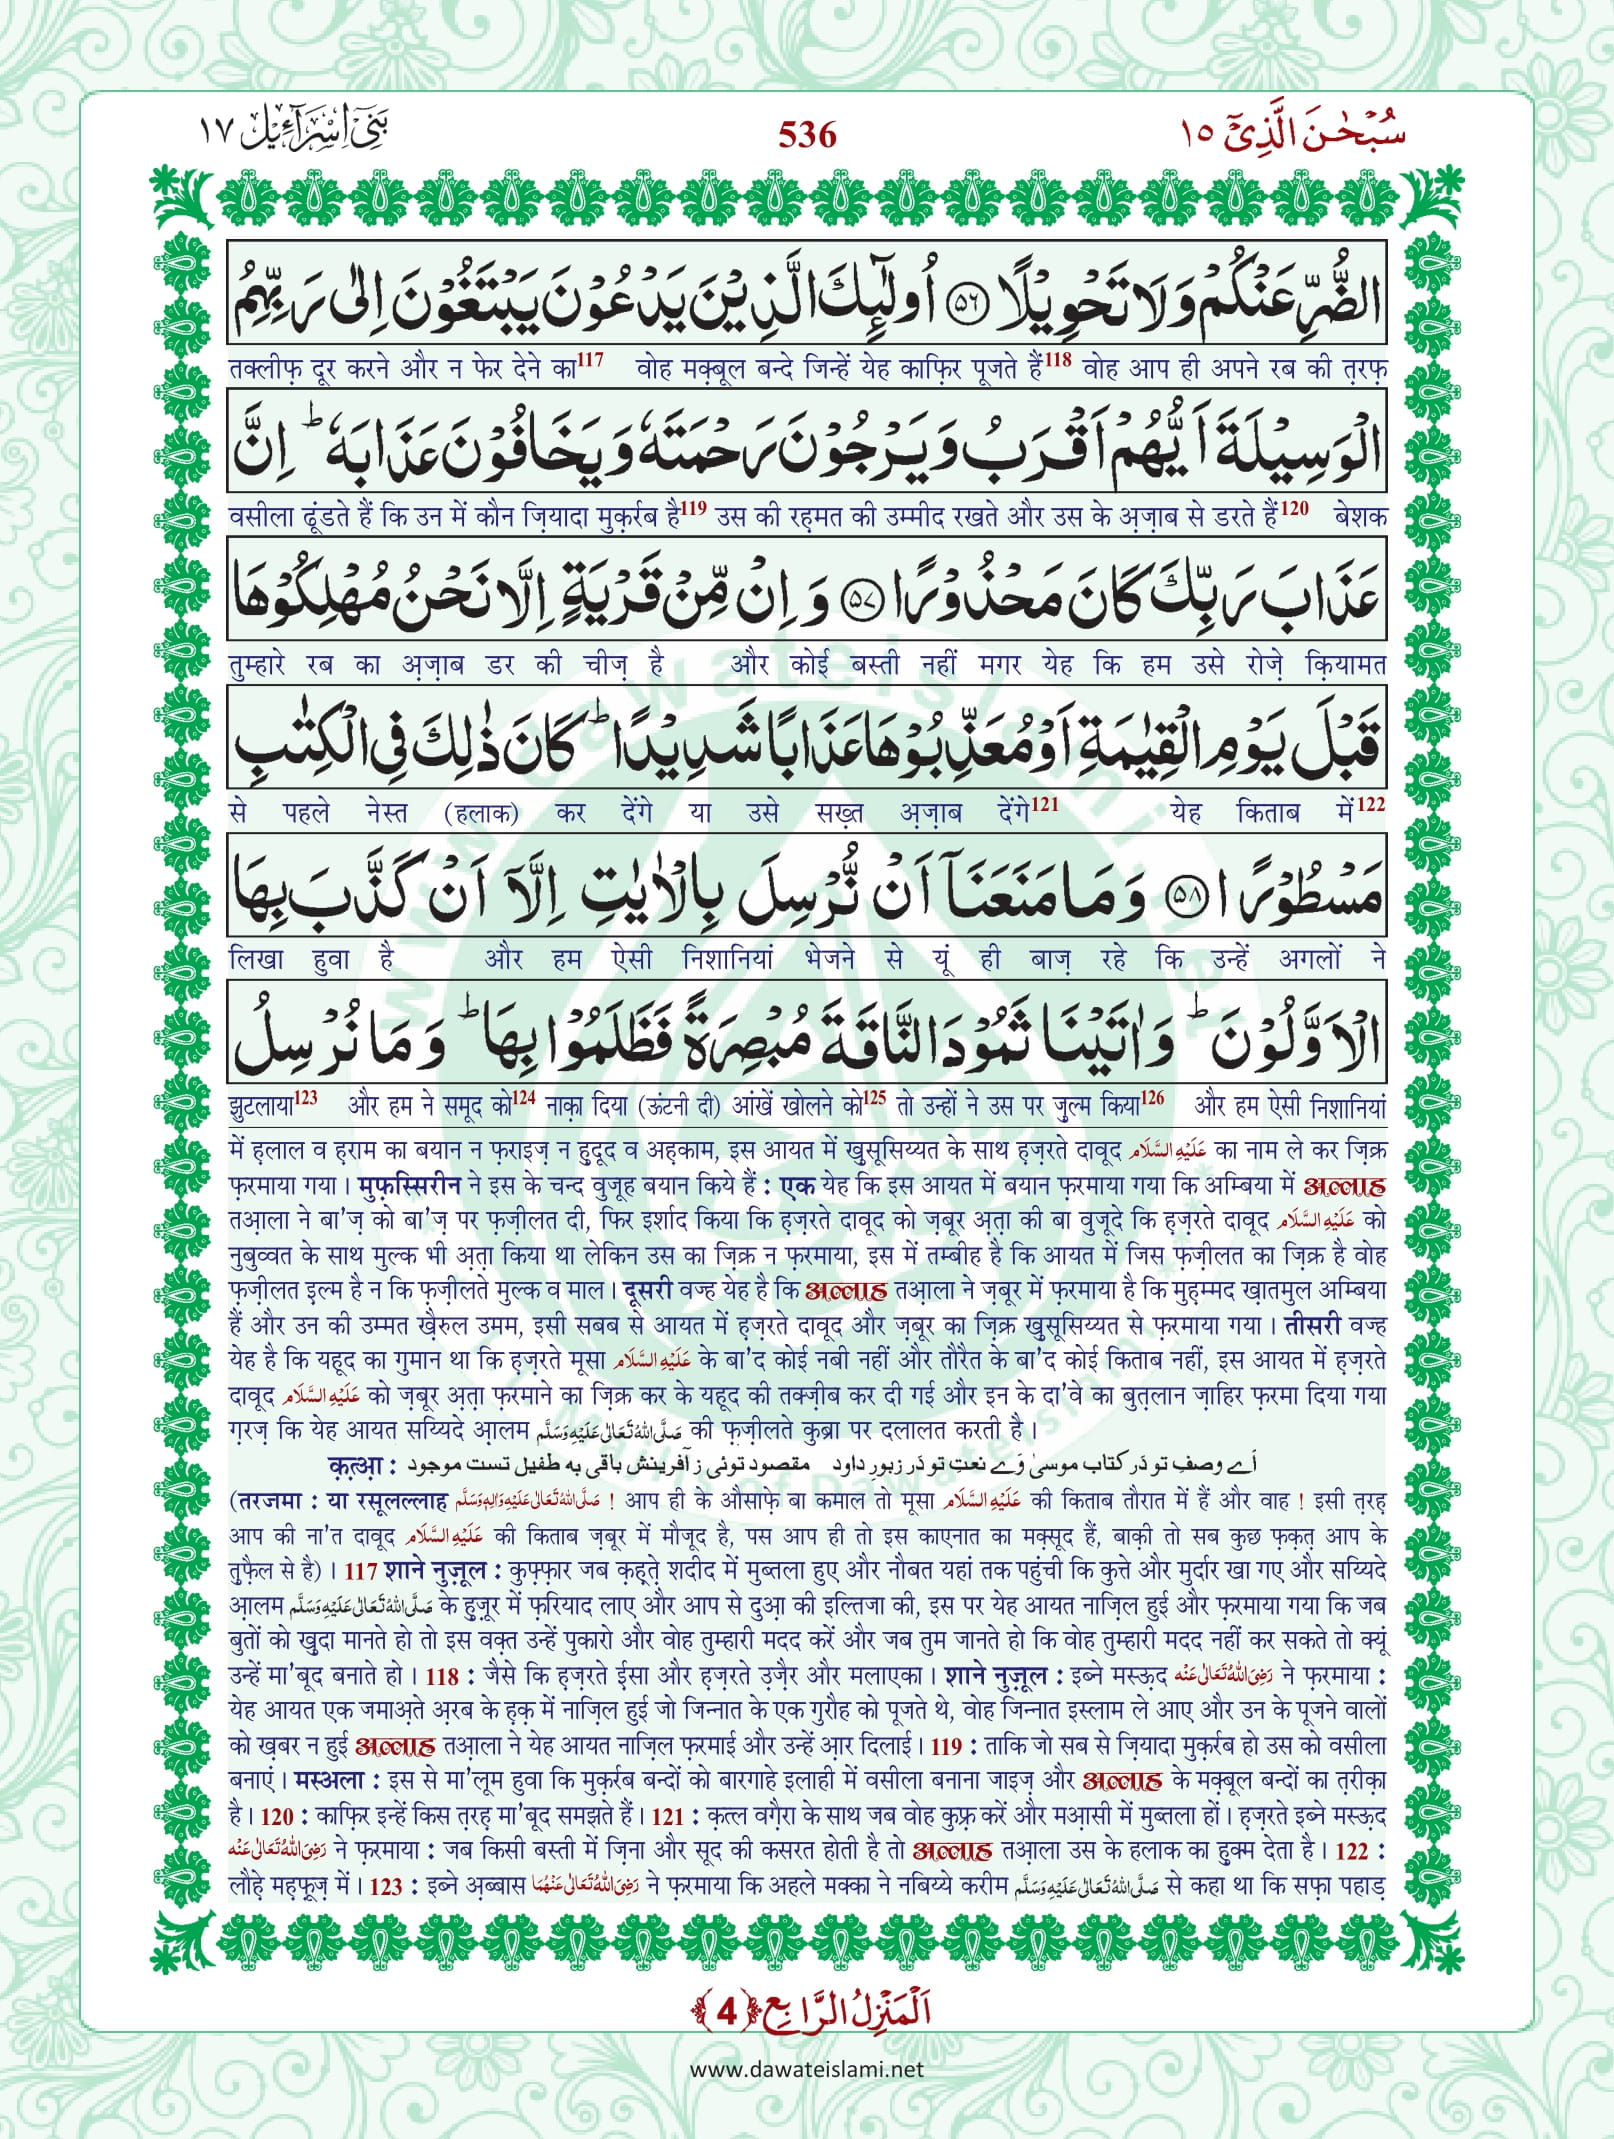 سُبْحٰنَ الَّذِیْۤ ١٥ 536 بَنِیْۤ اِسْرَآءِیْل ١٧
الضُّرِّ عَنْكُمْ وَ لَا تَحْوِیْلًا ﴿۵۶﴾ اُولٰٓىٕكَ الَّذِیْنَ یَدْعُوْنَ یَبْتَغُوْنَ اِلٰى رَبِّهِمُ
तक्लीफ़ दूर करने और न फेर देने का117 वोह मक़्बूल बन्दे जिन्हें येह काफ़िर पूजते हैं118 वोह आप ही अपने रब की त़रफ़
الْوَسِیْلَةَ اَیُّهُمْ اَقْرَبُ وَ یَرْجُوْنَ رَحْمَتَهٗ وَ یَخَافُوْنَ عَذَابَهٗؕ اِنَّ
वसीला ढूंडते हैं कि उन में कौन ज़ियादा मुक़र्रब है119 उस की रह़मत की उम्मीद रखते और उस के अ़ज़ाब से डरते हैं120 बेशक
عَذَابَ رَبِّكَ كَانَ مَحْذُوْرًا ﴿۵۷﴾ وَ اِنْ مِّنْ قَرْیَةٍ اِلَّا نَحْنُ مُهْلِكُوْهَا
तुम्हारे रब का अ़ज़ाब डर की चीज़ है और कोई बस्ती नहीं मगर येह कि हम उसे रोज़े क़ियामत
قَبْلَ یَوْمِ الْقِیٰمَةِ اَوْ مُعَذِّبُوْهَا عَذَابًا شَدِیْدًاؕ كَانَ ذٰلِكَ فِی الْكِتٰبِ
से पहले नेस्त (हलाक) कर देंगे या उसे सख़्त अ़ज़ाब देंगे121 येह किताब में122
مَسْطُوْرًا ﴿۵۸﴾ وَ مَا مَنَعَنَاۤ اَنْ نُّرْسِلَ بِالْاٰیٰتِ اِلَّاۤ اَنْ كَذَّبَ بِهَا
लिखा हुवा है और हम ऐसी निशानियां भेजने से यूं ही बाज़ रहे कि उन्हें अगलों ने
الْاَوَّلُوْنَؕ وَ اٰتَیْنَا ثَمُوْدَ النَّاقَةَ مُبْصِرَةً فَظَلَمُوْا بِهَاؕ وَ مَا نُرْسِلُ
झुटलाया123 और हम ने समूद को124 नाक़ा दिया (ऊंटनी दी) आंखें खोलने को125 तो उन्हों ने उस पर ज़ुल्म किया126 और हम ऐसी निशानियां
में ह़लाल व ह़राम का बयान न फ़राइज़ न ह़ुदूद व अह़काम, इस आयत में ख़ुसूसिय्यत के साथ ह़ज़रते दावूद عَلَیْهِ السَّلَام का नाम ले कर ज़िक्र
फ़रमाया गया। मुफ़स्सिरीन ने इस के चन्द वुजूह बयान किये हैं : एक येह कि इस आयत में बयान फ़रमाया गया कि अम्बिया में अल्लाह
तआ़ला ने बा'ज़ को बा'ज़ पर फ़ज़ीलत दी, फिर इर्शाद किया कि ह़ज़रते दावूद को ज़बूर अ़त़ा की बा वुजूदे कि ह़ज़रते दावूद عَلَیْهِ السَّلَام को
नुबुव्वत के साथ मुल्क भी अ़त़ा किया था लेकिन उस का ज़िक्र न फ़रमाया, इस में तम्बीह है कि आयत में जिस फ़ज़ीलत का ज़िक्र है वोह
फ़ज़ीलत इ़ल्म है न कि फ़ज़ीलते मुल्क व माल। दूसरी वज्ह येह है कि अल्लाह तआ़ला ने ज़बूर में फ़रमाया है कि मुह़म्मद ख़ातमुल अम्बिया
हैं और उन की उम्मत ख़ैरुल उमम, इसी सबब से आयत में ह़ज़रते दावूद और ज़बूर का ज़िक्र ख़ुसूसिय्यत से फ़रमाया गया। तीसरी वज्ह
येह है कि यहूद का गुमान था कि ह़ज़रते मूसा عَلَیْهِ السَّلَام के बा'द कोई नबी नहीं और तौरैत के बा'द कोई किताब नहीं, इस आयत में ह़ज़रते
दावूद عَلَیْهِ السَّلَام को ज़बूर अ़त़ा फ़रमाने का ज़िक्र कर के यहूद की तक्ज़ीब कर दी गई और इन के दा'वे का बुत़लान ज़ाहिर फ़रमा दिया गया
ग़रज़ कि येह आयत सय्यिदे आ़लम صَلَّى اللّٰهُ تَعَالٰى عَلَیْهِ وَسَلَّم की फ़ज़ीलते कुब्रा पर दलालत करती है।
क़त़्आ़ : اَے وصفِ تو دَر کتاب موسیٰ وَے نعتِ تو دَر زبورِ داود مقصود توئی ز آفرینش باقی به طفیل تست موجود
(तरजमा : या रसूलल्लाह صَلَّى اللّٰهُ تَعَالٰى عَلَیْهِ وَاٰلِهٖ وَسَلَّم ! आप ही के औसाफ़े बा कमाल तो मूसा عَلَیْهِ السَّلَام की किताब तौरात में हैं और वाह ! इसी त़रह़
आप की ना'त दावूद عَلَیْهِ السَّلَام की किताब ज़बूर में मौजूद है, पस आप ही तो इस काएनात का मक़्सूद हैं, बाक़ी तो सब कुछ फ़क़त़ आप के
तुफ़ैल से है)। 117 शाने नुज़ूल : कुफ़्फ़ार जब क़ह़्त़े शदीद में मुब्तला हुए और नौबत यहां तक पहुंची कि कुत्ते और मुर्दार खा गए और सय्यिदे
आ़लम صَلَّى اللّٰهُ تَعَالٰى عَلَیْهِ وَسَلَّم के ह़ुज़ूर में फ़रियाद लाए और आप से दुआ़ की इल्तिजा की, इस पर येह आयत नाज़िल हुई और फ़रमाया गया कि जब
बुतों को ख़ुदा मानते हो तो इस वक़्त उन्हें पुकारो और वोह तुम्हारी मदद करें और जब तुम जानते हो कि वोह तुम्हारी मदद नहीं कर सकते तो क्यूं
उन्हें मा'बूद बनाते हो। 118 : जैसे कि ह़ज़रते ई़सा और ह़ज़रते उ़ज़ैर और मलाएका। शाने नुज़ूल : इब्ने मस्ऊ़द رَضِیَ اللّٰهُ تَعَالٰى عَنْه ने फ़रमाया :
येह आयत एक जमाअ़ते अ़रब के ह़क़ में नाज़िल हुई जो जिन्नात के एक गुरौह को पूजते थे, वोह जिन्नात इस्लाम ले आए और उन के पूजने वालों
को ख़बर न हुई अल्लाह तआ़ला ने येह आयत नाज़िल फ़रमाई और उन्हें आ़र दिलाई। 119 : ताकि जो सब से ज़ियादा मुक़र्रब हो उस को वसीला
बनाएं। मस्अला : इस से मा'लूम हुवा कि मुक़र्रब बन्दों को बारगाहे इलाही में वसीला बनाना जाइज़ और अल्लाह के मक़्बूल बन्दों का त़रीक़ा
है। 120 : काफ़िर इन्हें किस त़रह़ मा'बूद समझते हैं। 121 : क़त्ल वग़ैरा के साथ जब वोह कुफ़्र करें और मआ़सी में मुब्तला हों। ह़ज़रते इब्ने मस्ऊ़द
رَضِیَ اللّٰهُ تَعَالٰى عَنْه ने फ़रमाया : जब किसी बस्ती में ज़िना और सूद की कसरत होती है तो अल्लाह तआ़ला उस के हलाक का ह़ुक्म देता है। 122 :
लौह़े मह़फ़ूज़ में। 123 : इब्ने अ़ब्बास رَضِیَ اللّٰهُ تَعَالٰى عَنْهُمَا ने फ़रमाया कि अहले मक्का ने नबिय्ये करीम صَلَّى اللّٰهُ تَعَالٰى عَلَیْهِ وَسَلَّم से कहा था कि सफ़ा पहाड़
اَلْمَنْزِلُ الرَّابِع ﴿4﴾
www.dawateislami.net